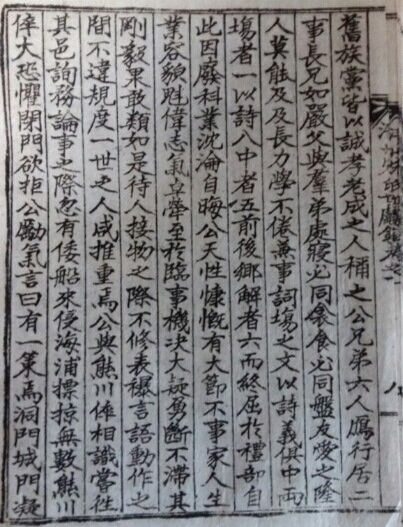 舊族黨皆以誠孝老成之人稱之公兄弟六人鴈行居二
事長兄如嚴父與羣弟處寢必同衾食必同盤友愛之隆
人莫能及及長力學不倦兼事詞塲之文以詩義俱中両
塲者一以詩八中者五前後鄉解者六而終屈於禮部自
此因廢科業沈淪自晦公天性慷慨有大節不事家人生
業容貌魁偉志氣卓犖至於臨事機決大疑勇斷不滯其
剛毅果敢類如是待人接物之際不修表襮言語動作之
間不違規度一世之人咸推重焉公與熊川倅相識嘗徃
其邑詢務論事之際忽有倭船來侵海浦摽掠無數熊川
倅大恐懼閉門欲拒公勵氣言曰有一策焉洞門城門凝